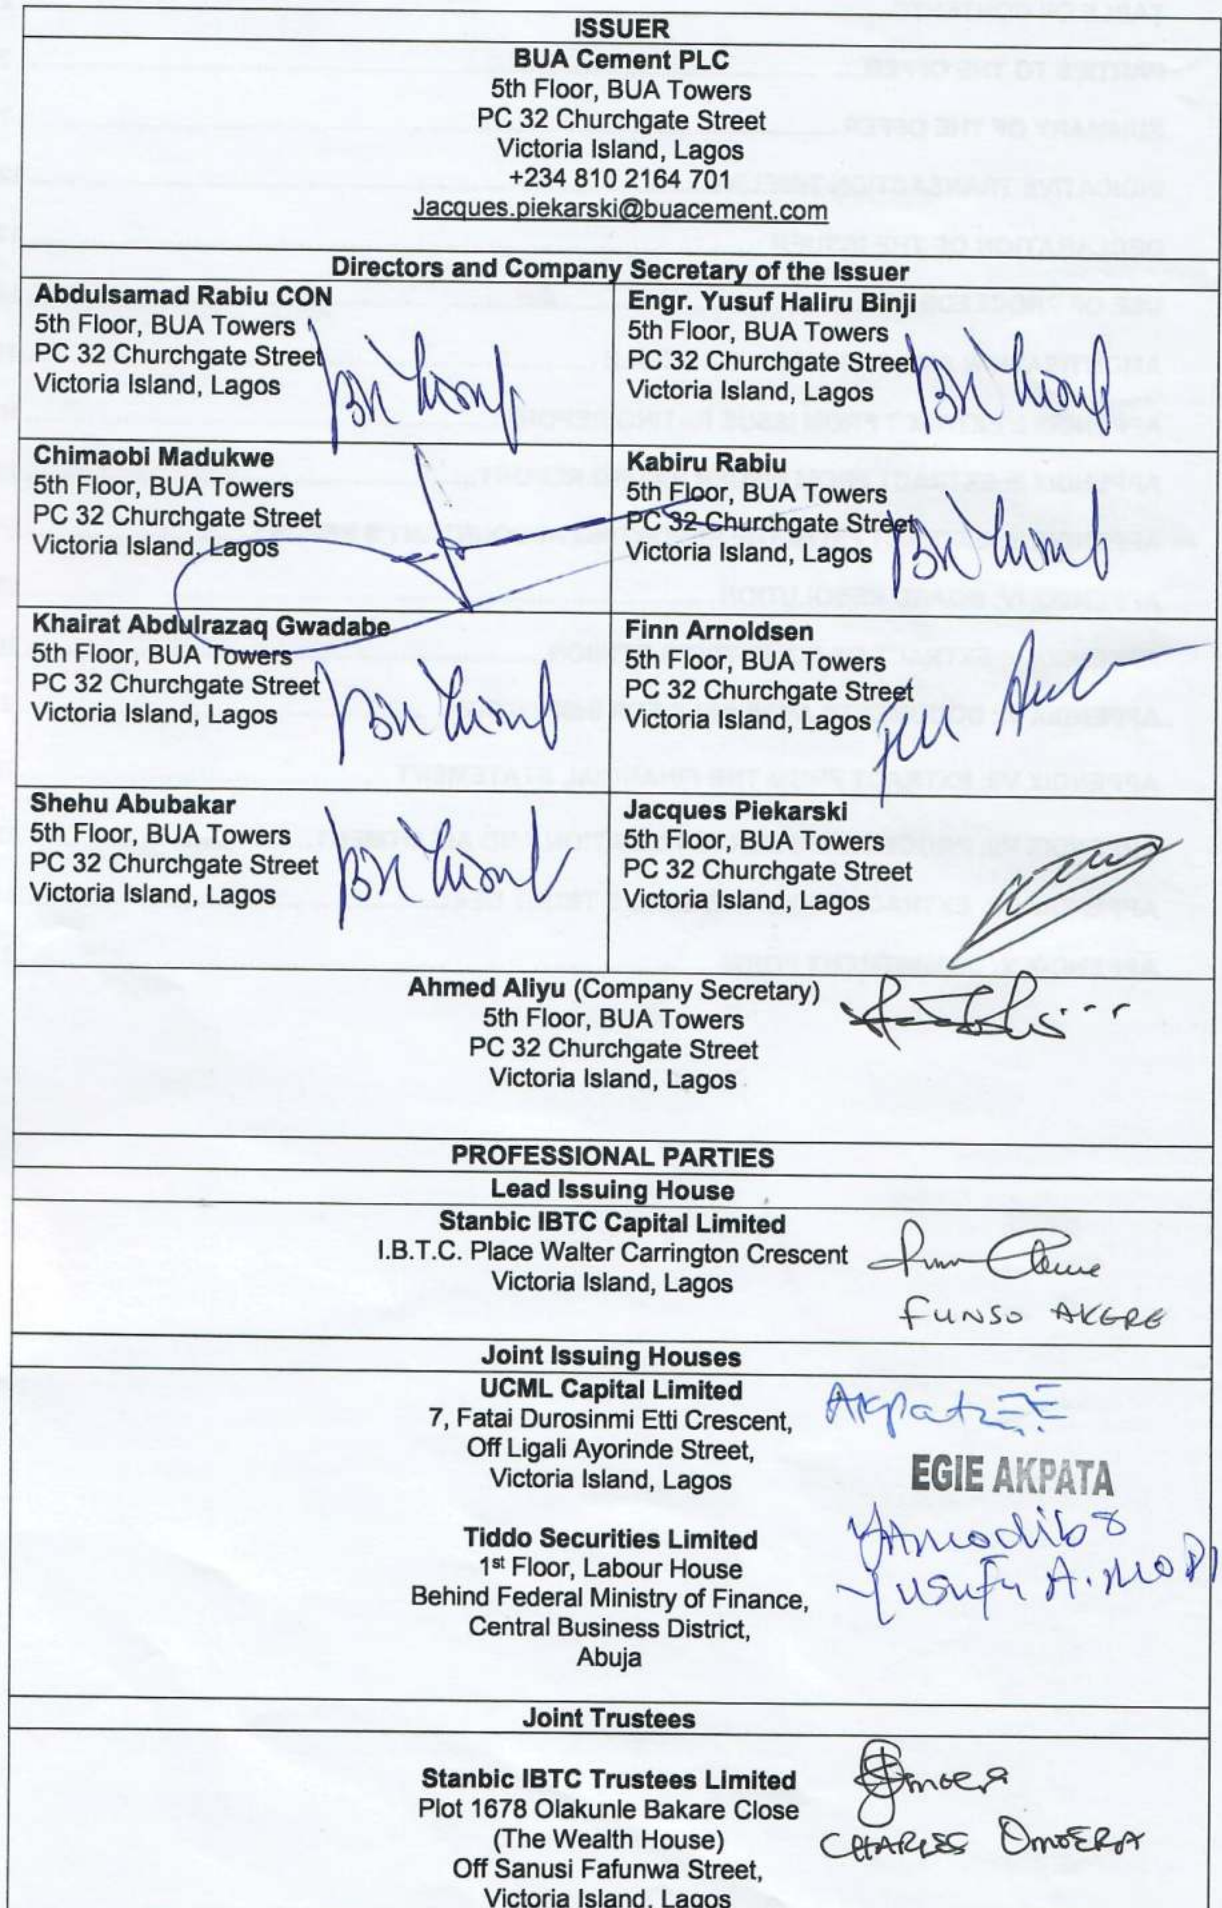 ISSUER
BUA Cement PLC
5th Floor, BUA Towers
PC 32 Churchgate Street
Victoria Island, Lagos
+234 810 2164 701
Jacques.piekarski@buacement.com
Directors and Company Secretary of the Issuer
Abdulsamad Rabiu CON
5th Floor, BUA Towers
PC 32 Churchgate Street
Victoria Island, Lagos
Engr. Yusuf Haliru Binji
5th Floor, BUA Towers
PC 32 Churchgate Street
Victoria Island, Lagos
Chimaobi Madukwe
5th Floor, BUA Towers
PC 32 Churchgate Street
Victoria Island, Lagos
Kabiru Rabiu
5th Floor, BUA Towers
PC 32 Churchgate Street
Victoria Island, Lagos
Khairat Abdulrazaq Gwadabe
5th Floor, BUA Towers
PC 32 Churchgate Street
Victoria Island, Lagos
Finn Arnoldsen
5th Floor, BUA Towers
PC 32 Churchgate Street
Victoria Island, Lagos
Shehu Abubakar
5th Floor, BUA Towers
PC 32 Churchgate Street
Victoria Island, Lagos
Jacques Piekarski
5th Floor, BUA Towers
PC 32 Churchgate Street
Victoria Island, Lagos
Ahmed Aliyu (Company Secretary)
5th Floor, BUA Towers
PC 32 Churchgate Street
Victoria Island, Lagos
PROFESSIONAL PARTIES
Lead Issuing House
Stanbic IBTC Capital Limited
I.B.T.C. Place Walter Carrington Crescent
Victoria Island, Lagos
FUNSO AKERE
Joint Issuing Houses
UCML Capital Limited
7, Fatai Durosinmi Etti Crescent,
Off Ligali Ayorinde Street,
Victoria Island, Lagos
EGIE AKPATA
Tiddo Securities Limited
1st Floor, Labour House
Behind Federal Ministry of Finance,
Central Business District,
Abuja
Joint Trustees
Stanbic IBTC Trustees Limited
Plot 1678 Olakunle Bakare Close
(The Wealth House)
Off Sanusi Fafunwa Street,
Victoria Island, Lagos
CHARLES OMOERA